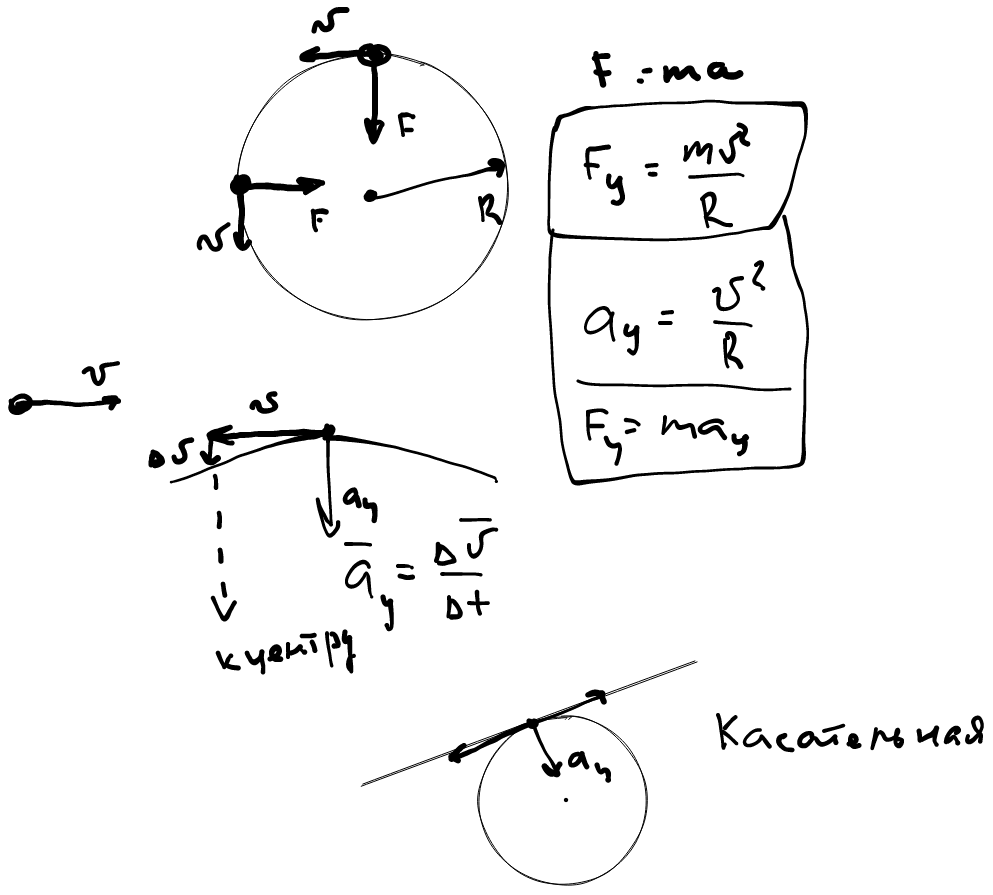 v
F
R
F
v
F = ma
Fц = mv²/R
aц = v²/R
Fц = maц
v
v
Δv
aц
āц = Δv̄/Δt
к центру
aц
Касательная